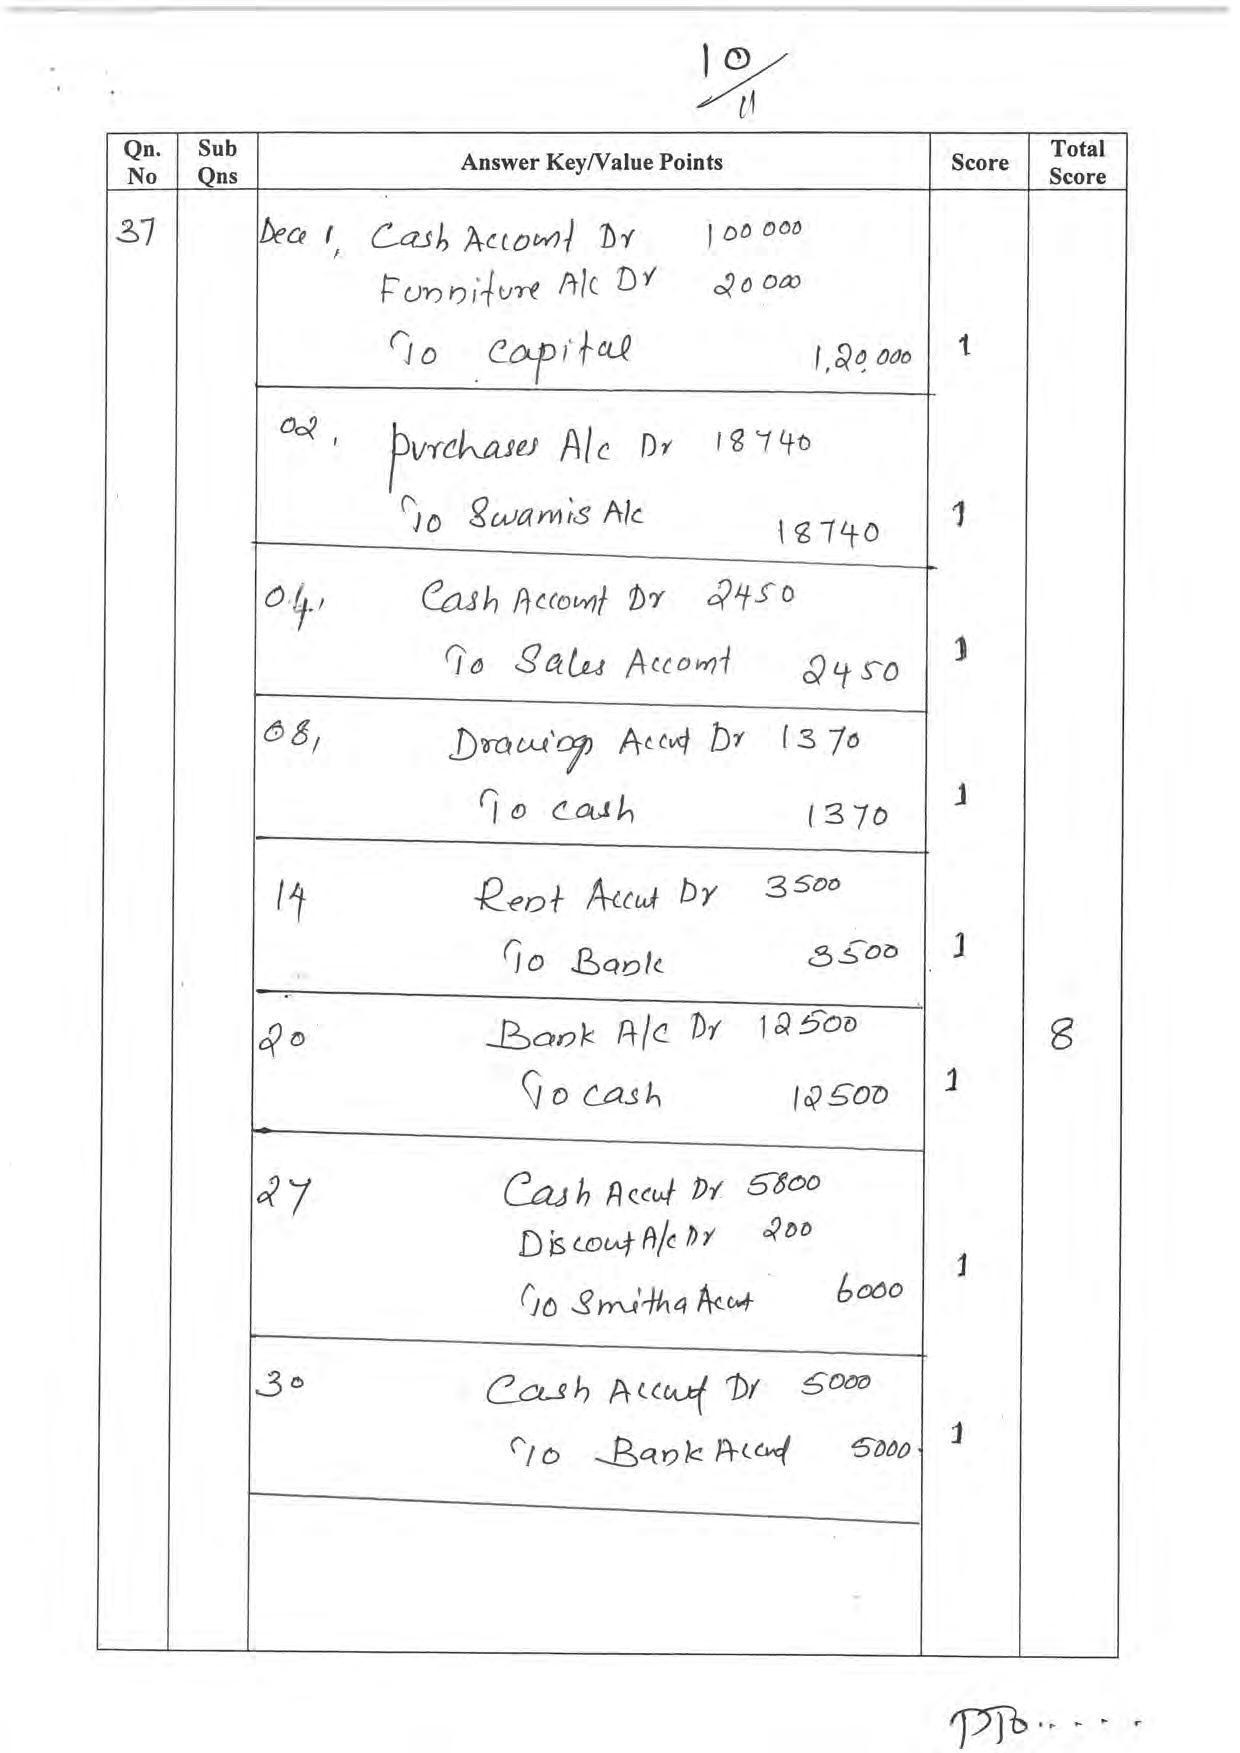 10/11
Qn. No | Sub Qns | Answer Key/Value Points | Score | Total Score
37 Dece 1, Cash Account Dr 100 000
Funniture A/c Dr 20 000
To capital 1,20,000 1
02, purchases A/c Dr 18740
To Swamis A/c 18740 1
04, Cash Account Dr 2450
To Sales Account 2450 1
08, Drawing Accut Dr 1370
To cash 1370 1
14 Rent Accut Dr 3500
To Bank 3500 1
20 Bank A/c Dr 12500 8
To cash 12500 1
27 Cash Accut Dr 5800
Discout A/c Dr 200
To Smitha Accut 6000 1
30 Cash Accut Dr 5000
To Bank Accut 5000 1
PTO.....